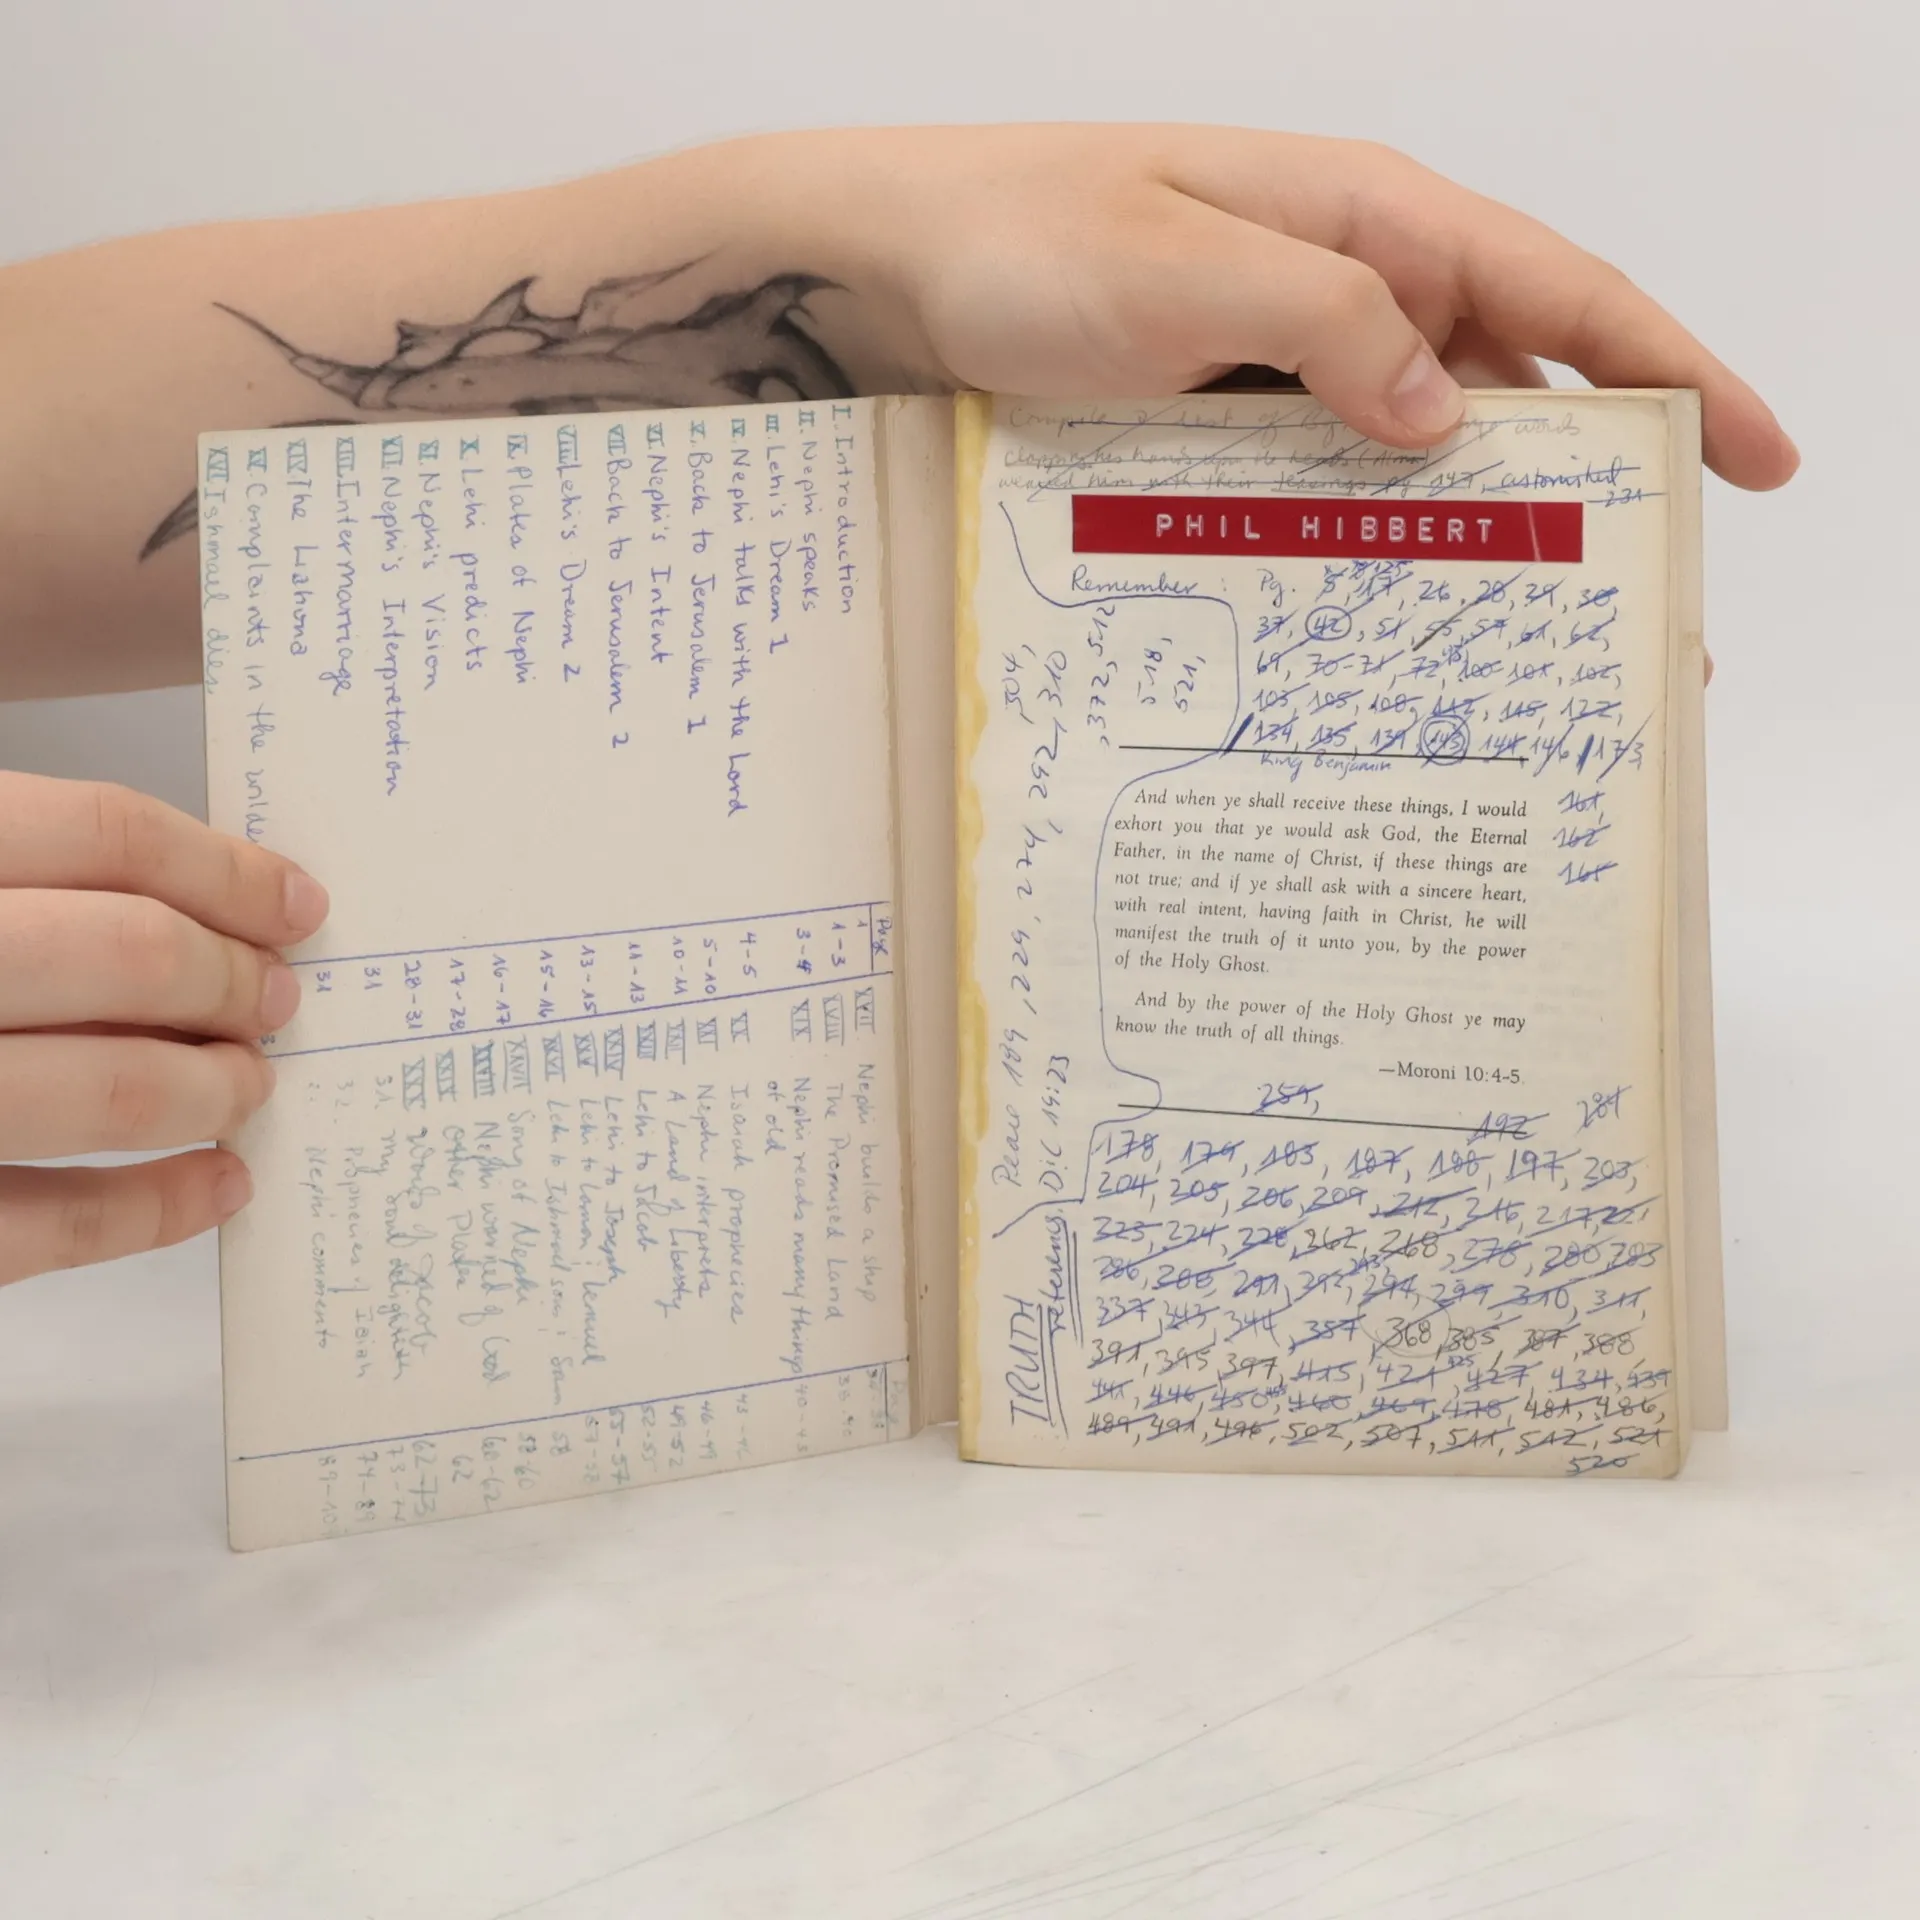 I. Introduction
II. Nephi speaks
III. Lehi's Dream 1
IV. Nephi talks with the Lord
V. Back to Jerusalem 1
VI. Nephi's Intent
VII. Back to Jerusalem 2
VIII. Lehi's Dream 2
IX. Plates of Nephi
X. Lehi predicts
XI. Nephi's Vision
XII. Nephi's Interpretation
XIII. Intermarriage
XIV. The Liahona
XV. Complaints in the wilder
XVI. Ishmael dies.
Page
1
1-3
3-4
4-5
5-10
10-11
11-13
13-15
15-16
16-17
17-28
28-31
31
31
3
XVII. Nephi builds a ship
XVIII. The Promised Land
XIX. Nephi reads many things 40-43
of old
XX Isaiah prophecies
XXI Nephi interprets 46-49
XXII A Land of Liberty 49-52
XXIII Lehi to Jacob 52-55
XXIV Lehi to Joseph 55-57
XXV Lehi to Laman; Lemuel 57-58
XXVI Lehi to Ishmael sons; Sam 58
XXVII Song of Nephi 58-60
XXVIII Nephi warned of God 60-62
XXIX Other Plates 62
XXX Words of Jacob 62-73
31. My soul delighteth 73-74
32. Prophecies of Isaiah 74-89
Nephi comments
Compile a list of words
clapped his hands upon the heads (Alma)
wearied him with their teasings pg 147, astonished
231
PHIL HIBBERT
Remember : Pg. 5, 17, 26, 28, 29, 30,
37, 42, 51, 55, 57, 61, 62,
69, 70-71, 72, 100, 101, 102,
103, 105, 108, 112, 115, 122,
134, 135, 139, 143, 144, 146, 173,
King Benjamin
161,
162
165
And when ye shall receive these things, I would
exhort you that ye would ask God, the Eternal
Father, in the name of Christ, if these things are
not true; and if ye shall ask with a sincere heart,
with real intent, having faith in Christ, he will
manifest the truth of it unto you, by the power
of the Holy Ghost.
And by the power of the Holy Ghost ye may
know the truth of all things.
—Moroni 10:4-5.
259,
192
284
178, 179, 183, 187, 188, 197, 203,
204, 205, 206, 209, 212, 216, 217,
223, 224, 228, 262, 268, 278, 280, 283
286, 288, 291, 292, 294, 299, 310, 311,
337, 343, 344, 357, 368, 385, 387, 388,
391, 395, 397, 415, 421, 427, 434, 439
441, 446, 450, 460, 469, 478, 481, 486,
489, 491, 496, 502, 507, 511, 512, 521
520
TRUTH